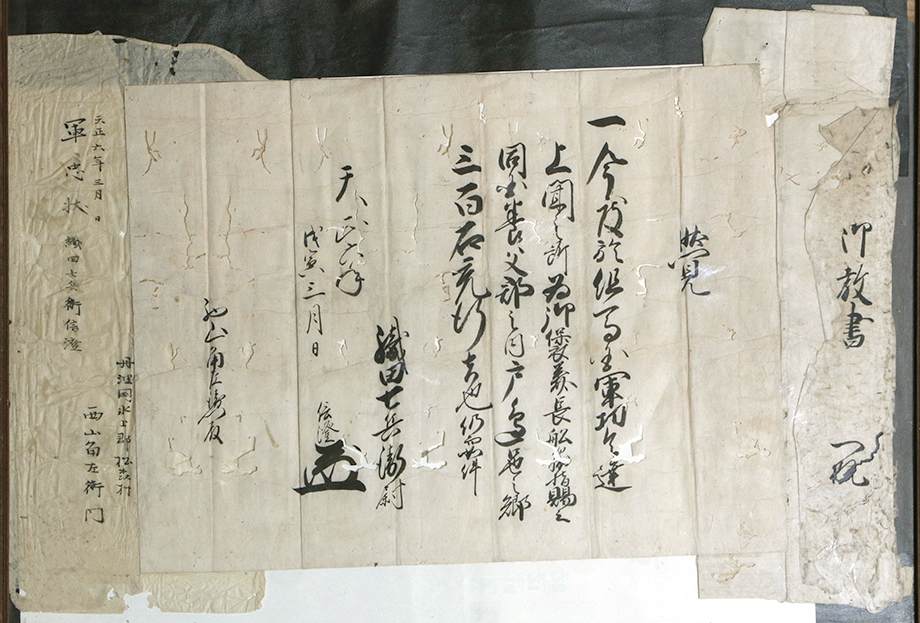 御教書 一
覚
一今度於但馬国軍功令達
上聞之所為御褒美長船御指賜之
同国養父郡之内戸 邑之郷
三百石充行者也仍而如件
天正六年
戊寅三月日
織田七兵衛尉
信澄
西山角左衛門殿
天正六年三月 日
軍忠状 織田七兵衛信澄
丹波国氷上郡 村
西山角左衛門